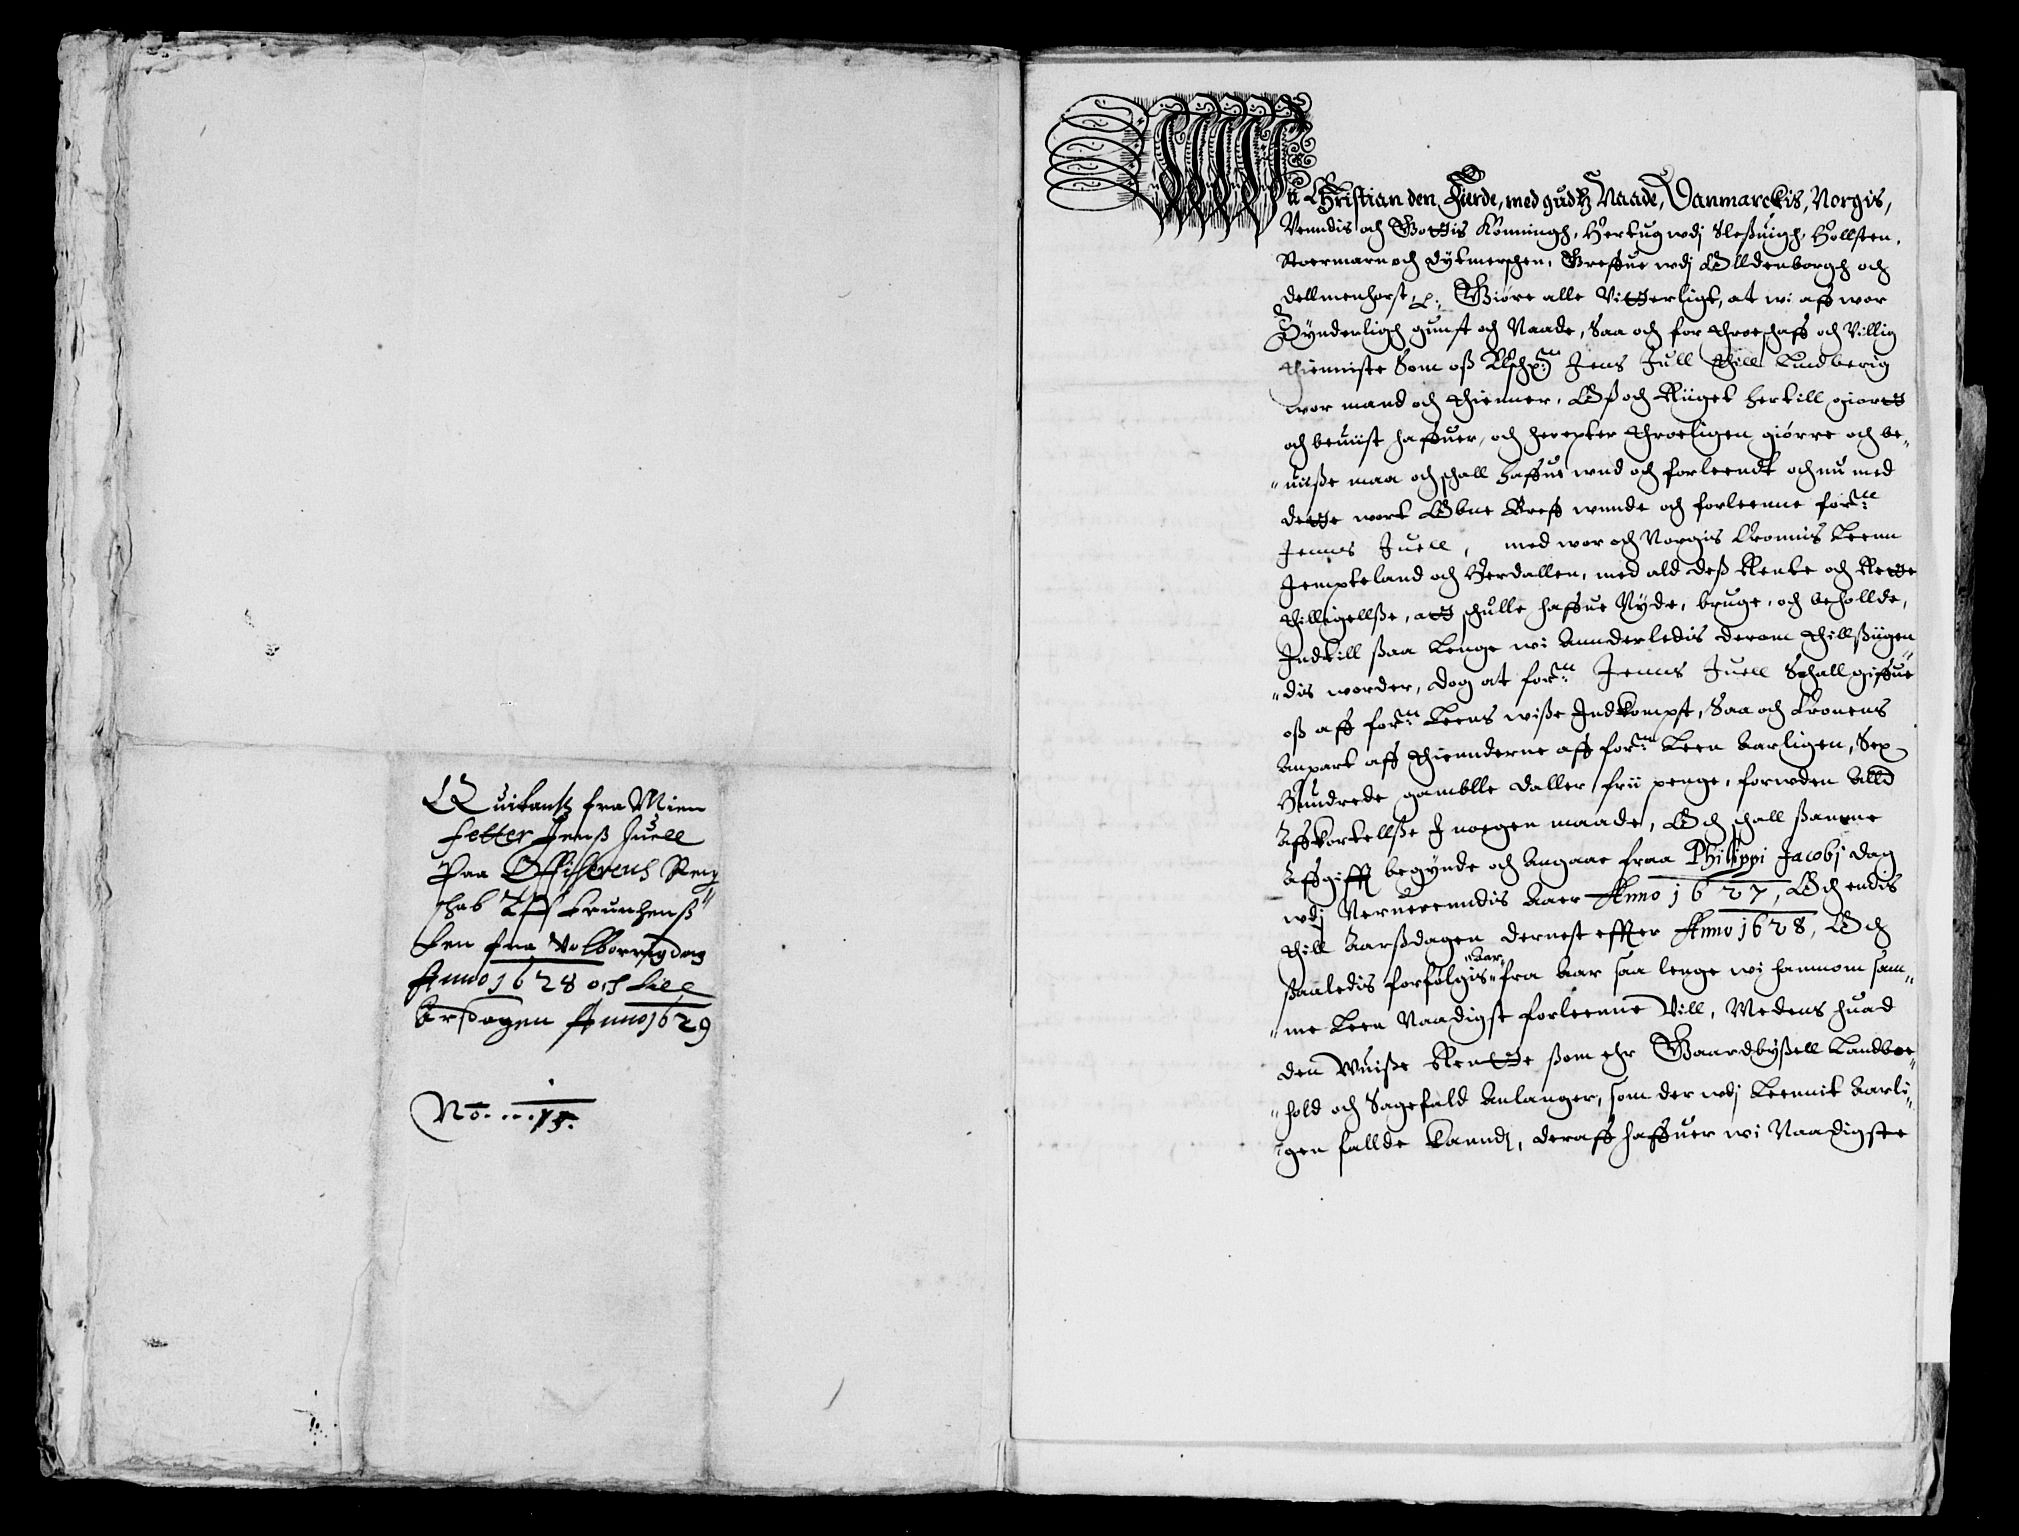 Quitantz fra Mien
fetter Jenß Juell
Paa Offiserens Reng
schab
Len fra Volborrigdag
Anno 1628 och till
Arsdagen Anno 1629
No....15.
Wii Christian den Fierde, med gudtz Naade, Danmarckis, Norgis,
Venndis och Gottis Konningh, Hertug wdj Sleßuigh, Hollsten,
Stoermarn och Dytmerschen, Greffue wdj Olldenborgh och
Dellmenhorst, Giøre alle Vitterligt, at wi aff wor
Synderligh gunst och Naade, Saa och for throeschaff och Villig
thienniste Som oß Elsche: Jens Jull thill Lindberig
wor mand och thienner, Oß och Riiget hertill giortt
och beuiist haffuer, och herepter throeligen giørre och be-
uiße maa och schall haffue wnd och forleendt och nu med
dette wort Obne Breff wnnde och forleenne forne:
Jenns Juell, med wor och Norgis Cronnis Leenn
Jempteland och Herdallen, med ald deß Rente och Rette
thilligellße, att schulle haffue Nyde, bruge, och beholde,
Indtill ßaa lenge wi Annderledis derom thillßiigen-
dis worder, dog at forne: Jenns Juell Schall giffue
oß aff forne: Leens wiße Indkompst, Saa och Cronens
Anpart aff thienderne aff forne: Leen Aarligen, Sex
Hundrede gamblle Daller frii penge, forwden Alld
Affkortellße J nogen maade, Och schall ßamme
Affgifft begynde och Angaae fraa Philippi Jacobj dag
wdj Nerueerendis Aaer Anno 1627, Och endis
thill Aarßdagen dernest effter Anno 1628, Och
ßaaledis forfølgis Aar fra Aar saa lenge wi hannom sam-
me Leen Naadigst forleenne Vill, Medens huad
den Wuiße Rentte ßom ehr Gaardbyßell Landboe-
hold och Sagefald Anlanger, som der wdj Leennit Aarli-
gen fallde kanndj, deraff haffuer wi Naadigste